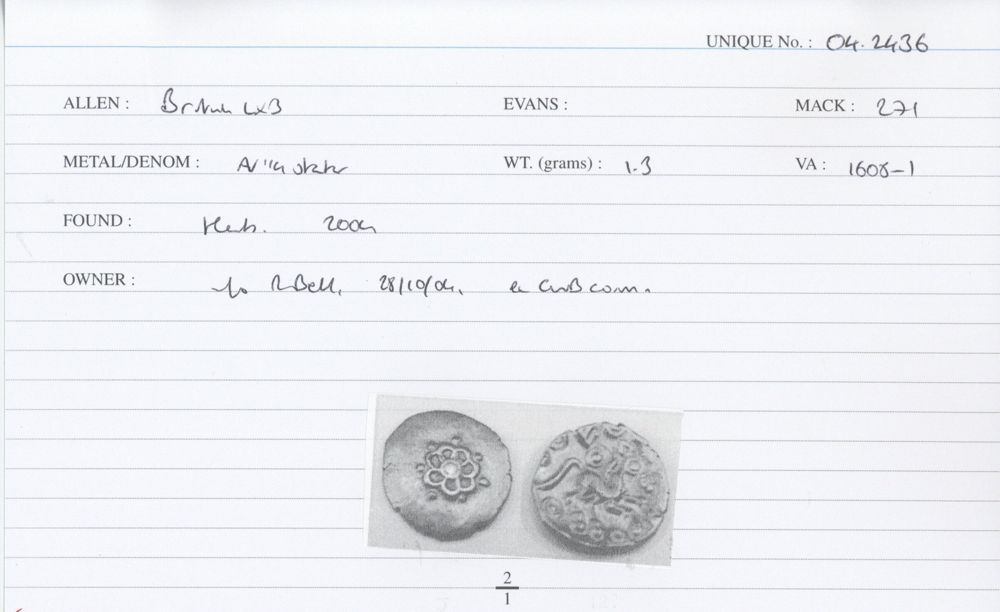 UNIQUE No. : 04.2436
ALLEN : British LXB EVANS : MACK : 271
METAL/DENOM : AV 1/4 stater WT. (grams) : 1.3 VA : 1608-1
FOUND : Herts. 2004
OWNER : R Bell, 28/10/04, com.
2
1